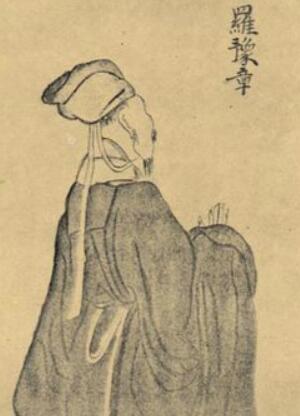 羅豫章